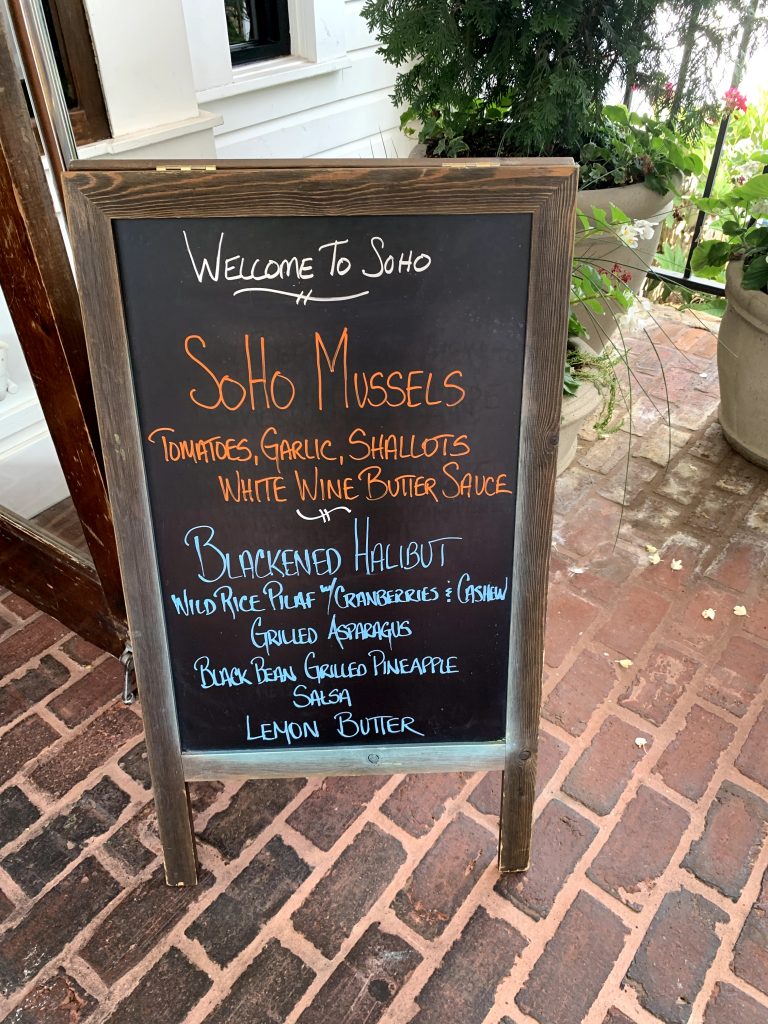 Welcome To SoHo
SoHo Mussels
Tomatoes, Garlic, Shallots
White Wine Butter Sauce
Blackened Halibut
Wild Rice Pilaf w/ Cranberries & Cashew
Grilled Asparagus
Black Bean Grilled Pineapple
Salsa
Lemon Butter